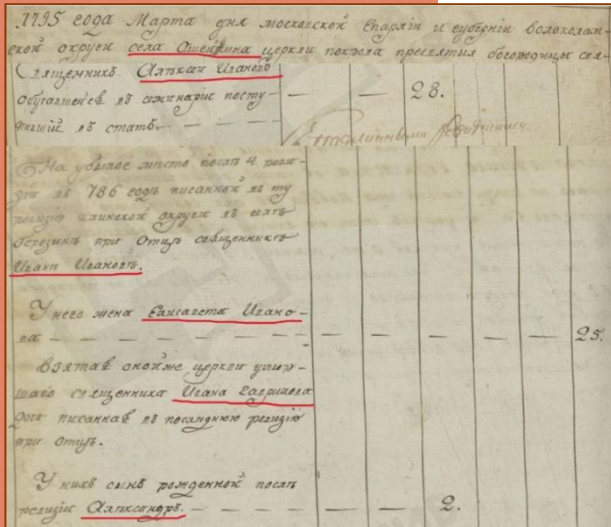 1795 года Марта дня московской Епархіи и губерніи волоколам-
ской округи села Ошейкина церкви покрова пресвятыя богородицы свя-
Священникъ Алѣксей Ивановъ
обучавшейся въ семинаріи посту- — — 28.
пившій въ статъ. —
На убылое мѣсто послѣ 4 реви-
зіи въ 786 годѣ писанной въ ту
ревизію клинской округи въ селѣ
при Отцѣ священникѣ
Иванѣ Ивановѣ.
У него жена Елисавета Ивано-
ва — — — — — — — 25.
взятая оной же церкви умер-
шаго священника Ивана Гаврилова
дочь писанная въ последнюю ревизію
при Отцѣ.
У нихъ сынъ рожденной послѣ
ревизіи Алѣксандръ. — — — — 2.